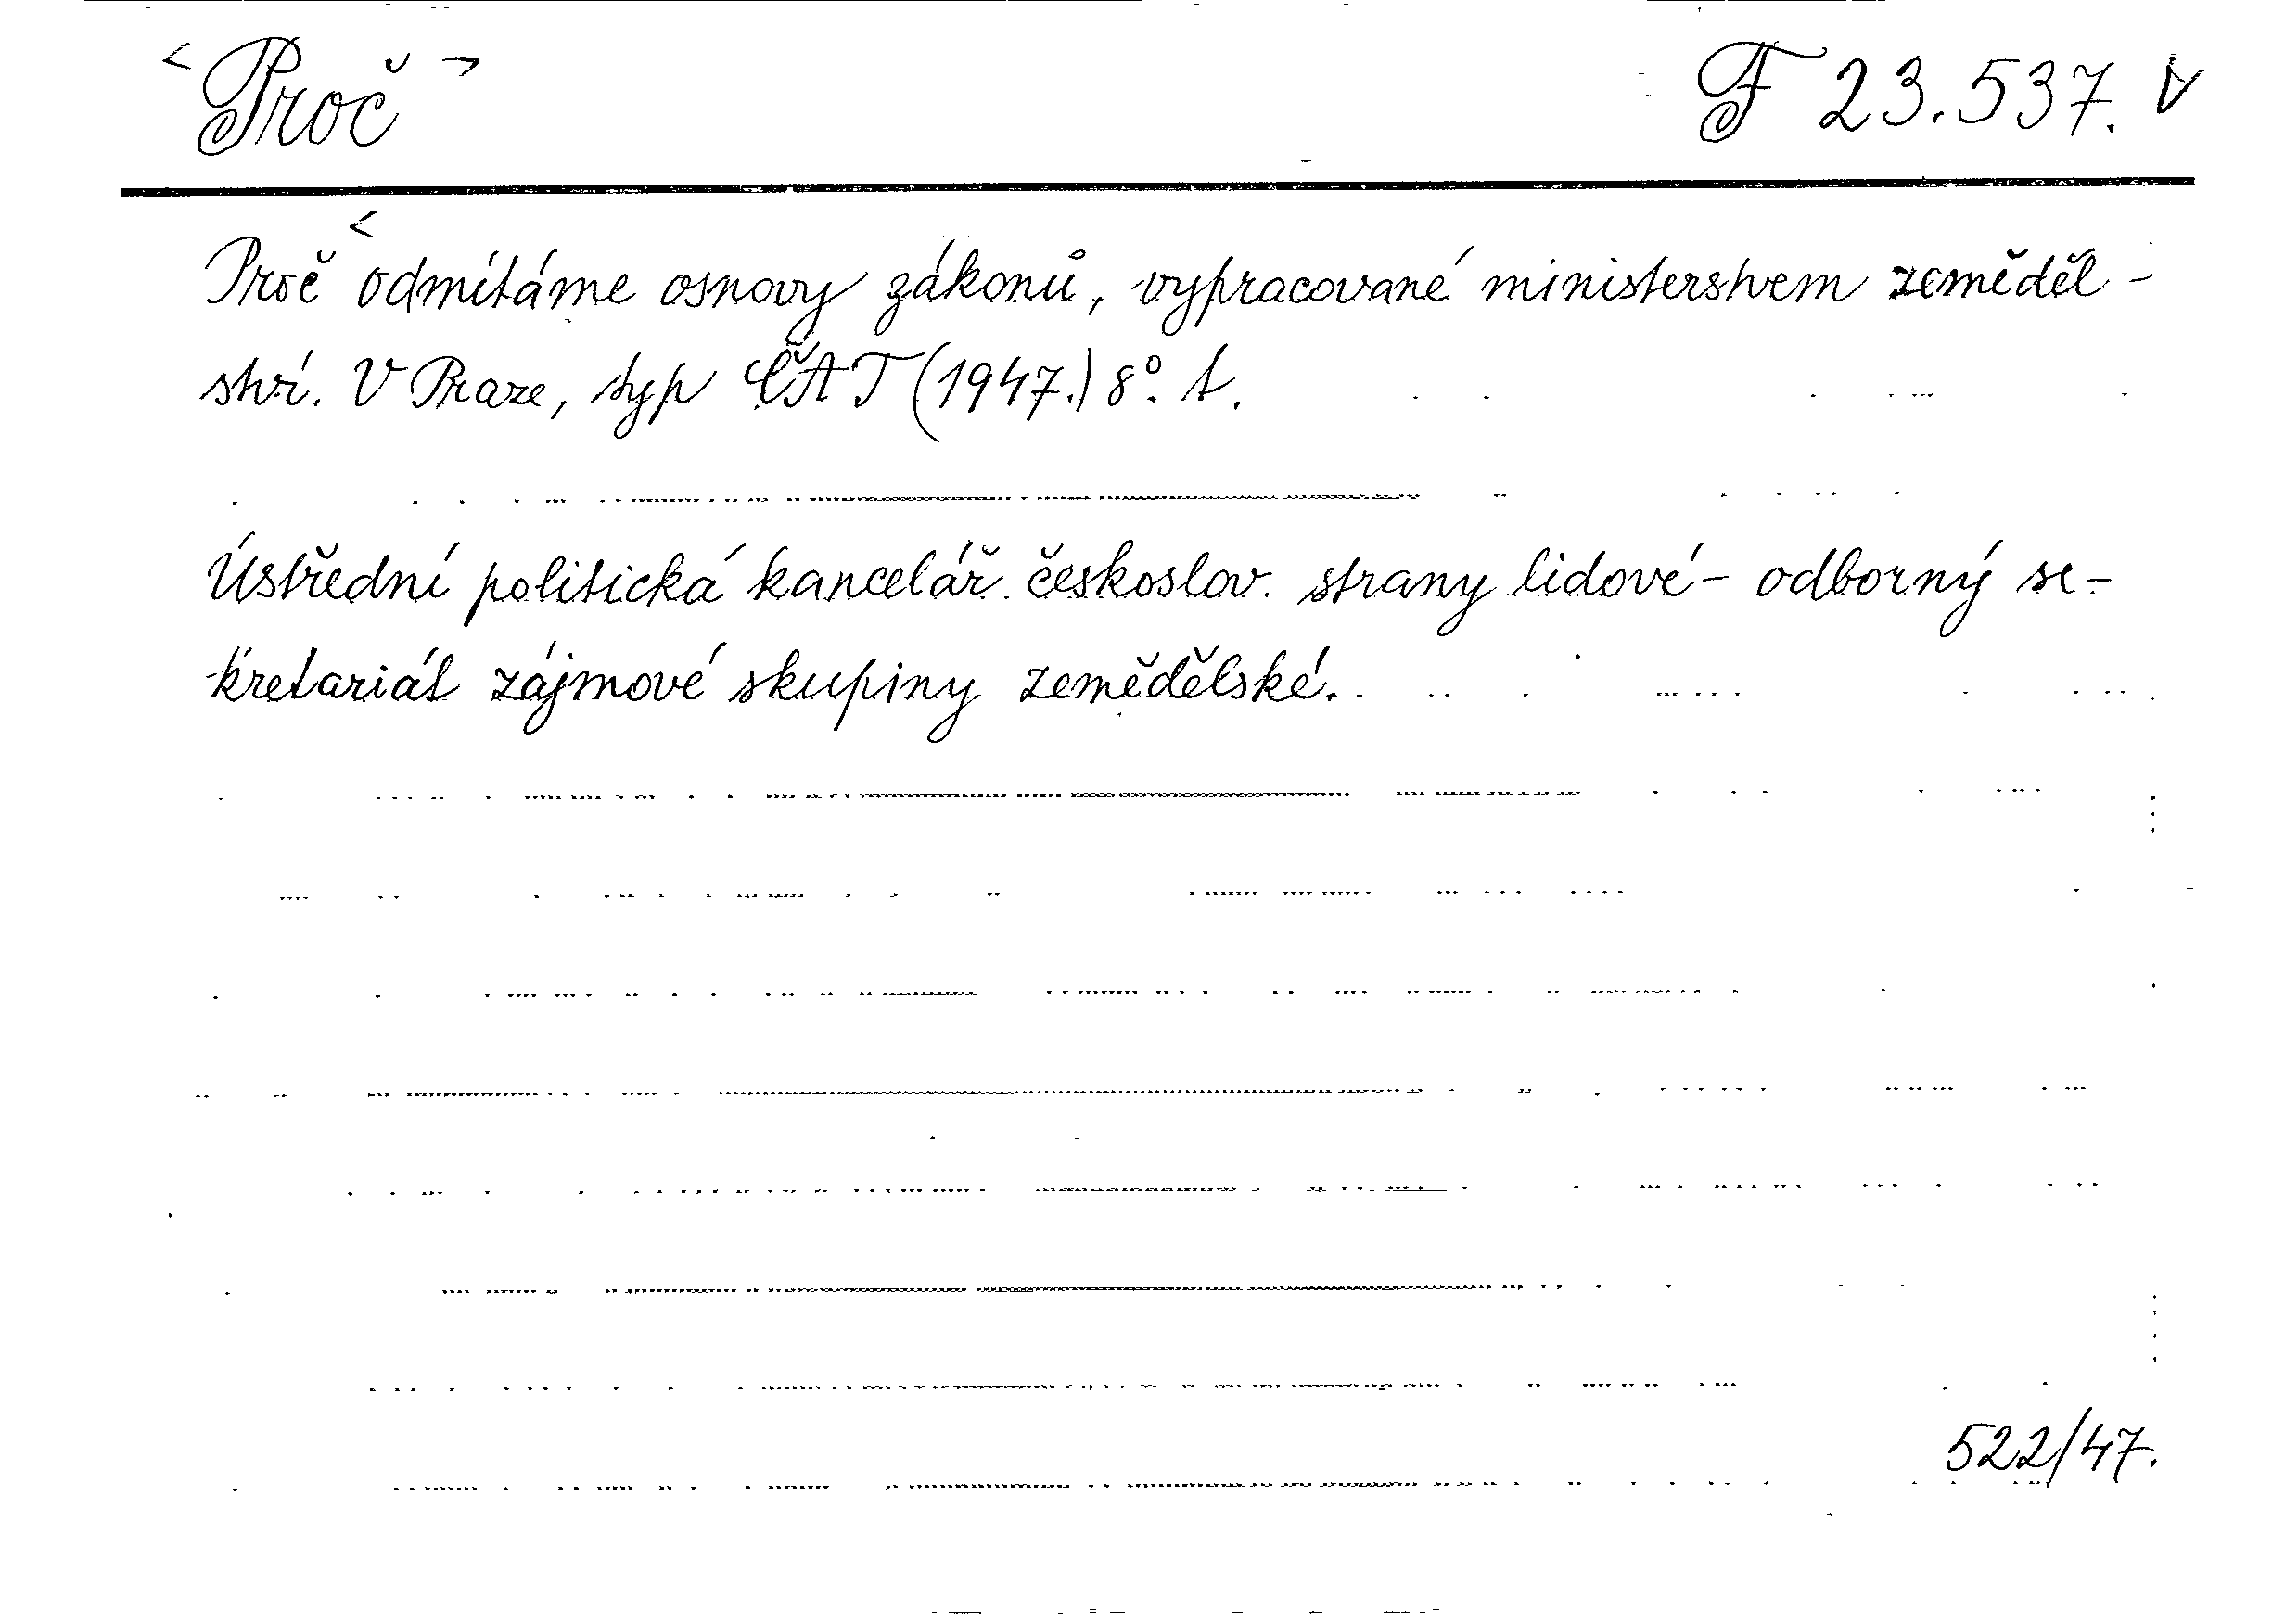 <Proč> F 23.537. V
Proč <odmítáme osnovy zákonů, vypracované ministerstvem zeměděl-
ství. V Praze, typ ČAT (1947.) 8°. t.
Ústřední politická kancelář českoslov. strany lidové - odborný se-
kretariát zájmové skupiny zemědělské.
522/47.